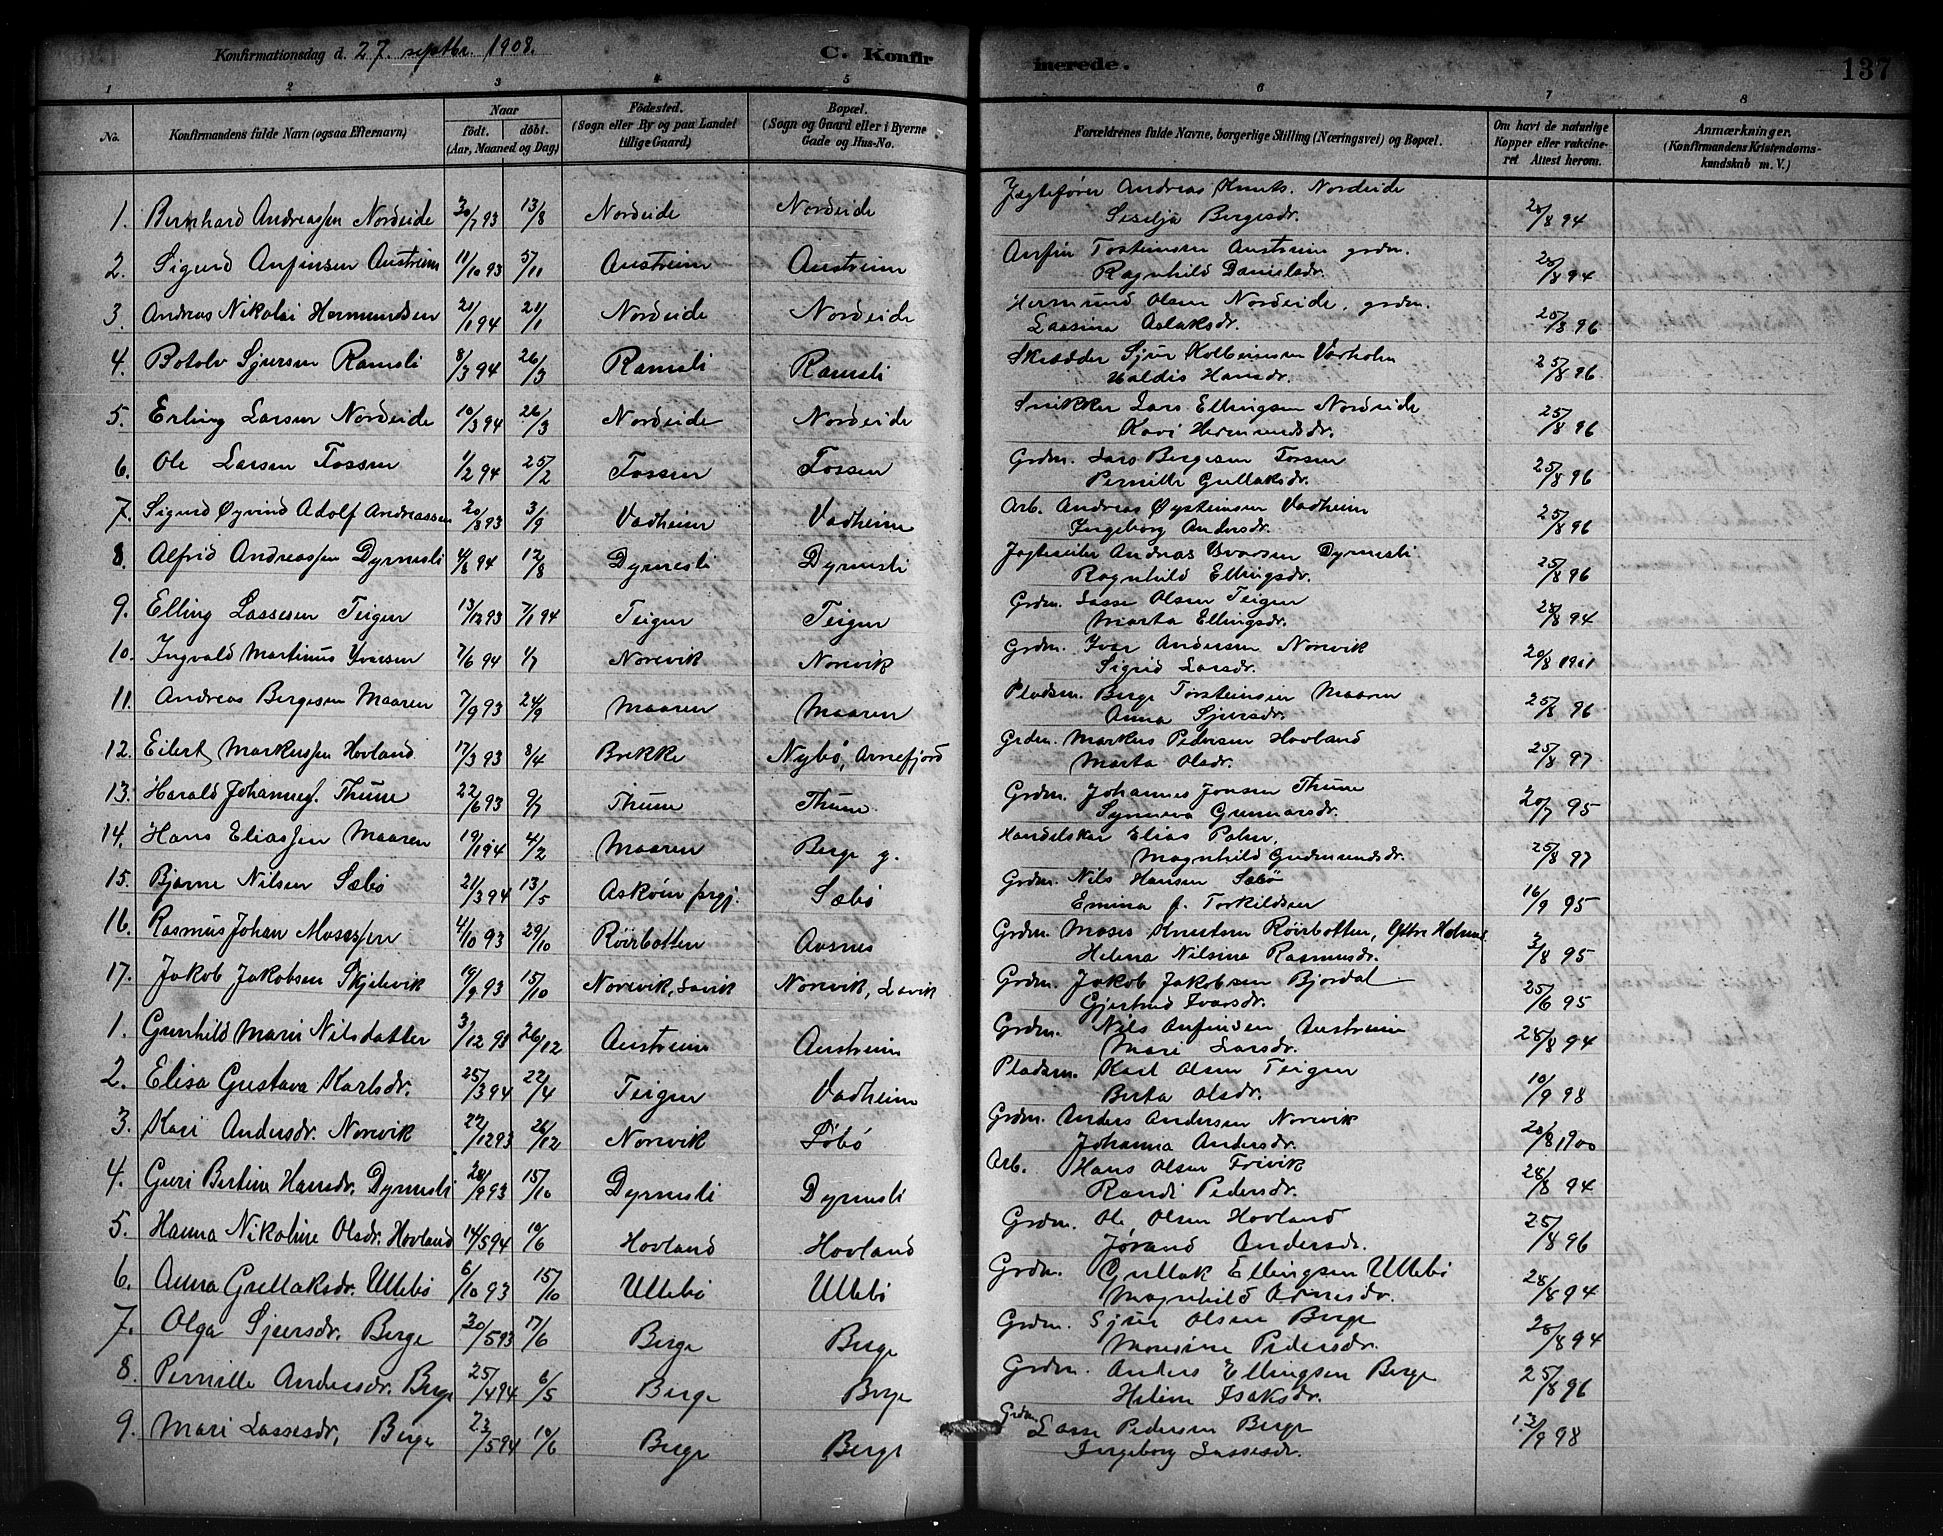 Konfirmationsdag d. 27. septbr. 1908. C. Konfir merede. 137
1 2 3 4 5 6 7 8
No. Konfirmandens fulde Navn (ogsaa Efternavn) Naar født. døbt. (Aar, Maaned og Dag) Födested. (Sogn eller By og paa Landet tillige Gaard) Bopæl. (Sogn og Gaard eller i Byerne Gade og Hus-No. Forældrenes fulde Navne, borgerlige Stilling (Næringsvei) og Bopæl. Om havt de naturlige Kopper eller vakcineret Attest herom. Anmærkninger. (Konfirmandens Kristendomskundskab m. V.)
1. Bernhard Andreassen Nordeide 30/7 93 13/8 Nordeide Nordeide Jægtefører Andreas Knuts. Nordeide
Seselja Bergesdr. 28/8 94
2. Sigurd Anfinsen Austreim 11/10 93 5/11 Austreim Austreim Anfin Torsteinsen Austreim grdm.
Ragnhild Danielsdr. 28/8 94
3. Andreas Nikolai Hermundsen 21/1 94 21/1 Nordeide Nordeide Hermund Olsen Nordeide, grdm.
Lassina Aslaksdr. 25/8 96
4. Botolv Sjursen Ramsli 8/3 94 26/3 Ramsli Ramsli Skrædder Sjur Kolbeinsen Varholm
Haldis Hansdr. 25/8 96.
5. Erling Larsen Nordeide 10/3 94 26/3 Nordeide Nordeide Snikker Lars Ellingsen Nordeide
Kari Hermundsdr. 25/8 96
6. Ole Larsen Fossen 1/2 94 25/2 Fossen Fossen Grdm. Lars Bergesen Fossen
Pernille Gullaksdr. 25/8 96
7. Sigurd Øyvind Adolf Andreassen 20/8 93 3/9 Vadheim Vadheim Arb. Andreas Øysteinsen Vadheim
Ingeborg Andersdr. 25/8 96
8. Alfrid Andreassen Dyrnesli 4/8 94 12/8 Dyrnesli Dyrnesli Jagteseiler Andreas Yvarsen Dyrnesli
Ragnhild Ellingsdr. 25/8 96
9. Elling Lassesen Teigen 13/12 93 7/1 94 Teigen Teigen Grdm. Lasse Olsen Teigen
Marta Ellingsdr. 28/8 94
10. Ingvald Martinus Yvarsen 7/6 94 1/7 Norevik Norevik Grdm. Ivar Andersen Norevik
Sigrid Larsdr. 20/8 1901
11. Andreas Bergesen Maaren 7/9 93 24/9 Maaren Maaren Pladsm. Berge Torsteinsen Maaren
Anna Sjursdr. 25/8 96
12. Eilert Markussen Hovland 17/3 93 3/4 Brekke Nybø, Arnefjord Grdm. Markus Pedersen Hovland
Marta Olsdr. 25/8 97
13. Harald Johannesf. Thune 22/6 93 9/7 Thune Thune Grdm. Johannes Jonsen Thune
Synneva Gunnarsdr. 20/7 95
14. Hans Eliassen Maaren 19/1 94 4/2 Maaren Berge y. Handelskar Elias Palm,
Magnhild Gudmundsdr. 25/8 97
15. Bjarne Nilsen Sæbø 21/3 94 13/5 Askøin prgj. Sæbø Grdm. Nils Hansen Sæbø
Emina f. Torkildsen 16/9 95
16. Rasmus Johan Mosessen 4/10 93 29/10 Røirbotten Aasnes Grdm. Moses Knutsen Røirbotten, Ytre Holmed.
Helena Nilsine Rasmusdr. 3/8 95
17. Jakob Jakobsen Skjelevik 19/9 93 15/10 Norevik, Lavik Norevik, Lavik Grdm. Jakob Jakobsen Bjordal
Gjertrud Ivarsdr. 25/6 95
1. Gunhild Marie Nilsdatter 3/12 93 26/12 Austreim Austreim Grdm. Nils Anfinsen Austreim
Mari Larsdr. 28/8 94
2. Elisa Gustava Karlsdr. 25/3 94 22/4 Teigen Vadheim Pladsm. Karl Olsen Teigen
Berta Olsdr. 10/9 98
3. Kari Andersdr. Norevik 22/12 93 26/12 Norevik Løbø Grdm. Anders Andersen Norevik
Johanna Andersdr. 20/8 1900
4. Guri Bertine Hansdr. Dyrnesli 20/9 93 15/10 Dyrnesli Dyrnesli Arb. Hans Olsen Trivik
Randi Pedersdr. 28/8 94
5. Hanna Nikoline Olsdr. Hovland 14/5 94 10/6 Hovland Hovland Grdm. Ole Olsen Hovland
Jørand Andersdr. 25/8 96
6. Anna Gullaksdr. Ullebø 6/10 93 15/10 Ullebø Ullebø Grdm. Gullak Ellingsen Ullebø
Magnhild Arnesdr. 28/8 94
7. Olga Sjursdr. Berge 30/5 93 17/6 Berge Berge Grdm. Sjur Olsen Berge
Monsine Pedersdr. 28/8 94
8. Pernille Andersdr. Berge 25/4 94 6/5 Berge Berge Grdm. Anders Ellingsen Berge
Heline Isaksdr. 25/8 96
9. Mari Lassesdr, Berge 23/5 94 10/6 Berge Berge Grdm Lasse Pedersen Berge
Ingeborg Lassesdr. 13/9 98